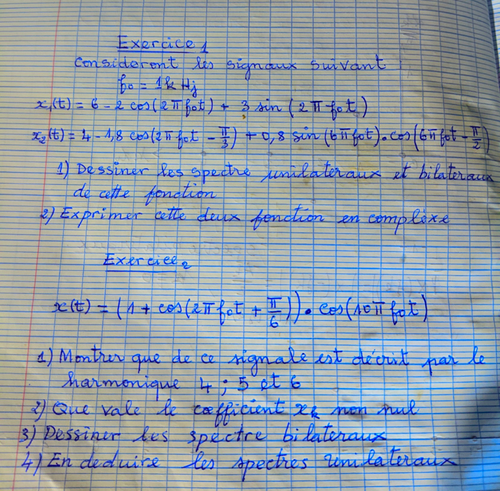 Exercice 1
Consideront les signaux suivant
f₀ = 1k Hz
x₁(t) = 6 - 2 cos(2πf₀t) + 3 sin(2πf₀t)
x₂(t) = 4 - 1,8 cos(2πf₀t - π/3) + 0,8 sin(6πf₀t) • cos(6πf₀t - π/2)
1) Dessiner les spectre unilateraux et bilateraux
de cette fonction
2) Exprimer cette deux fonction en complexe
Exercice 2
x(t) = (1 + cos(2πf₀t + π/6)) • cos(10πf₀t)
1) Montrer que de ce signale est décrit par le
harmonique 4 ; 5 et 6
2) Que vale le coefficient xk non nul
3) Dessiner les spectre bilateraux
4) En deduire les spectres unilateraux